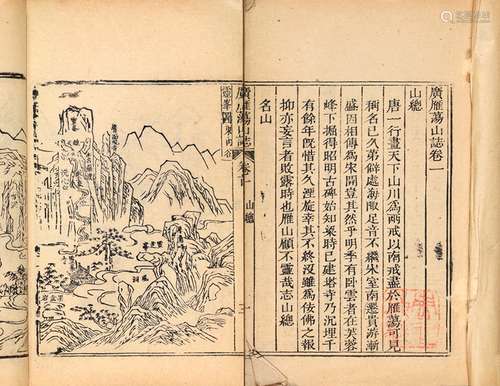 廣雁蕩山誌卷一
山總
唐一行畫天下山川為兩戒以南戒盡於雁蕩可見
稱名已久第僻處海陬足音不繼宋室南遷貴游漸
盛因相傳為宋開豈其然乎明季有卧雲者在芙蓉
峰下得昭明古碑始知梁時已建塔寺乃沉埋千
有餘年既惜其久湮旋幸其不終沒雖為依佛之報
抑亦妄言者敗露時也雁山顧不靈哉志山總
名山
廣雁蕩山誌 卷一 山總 一
靈峯圖 東內谷